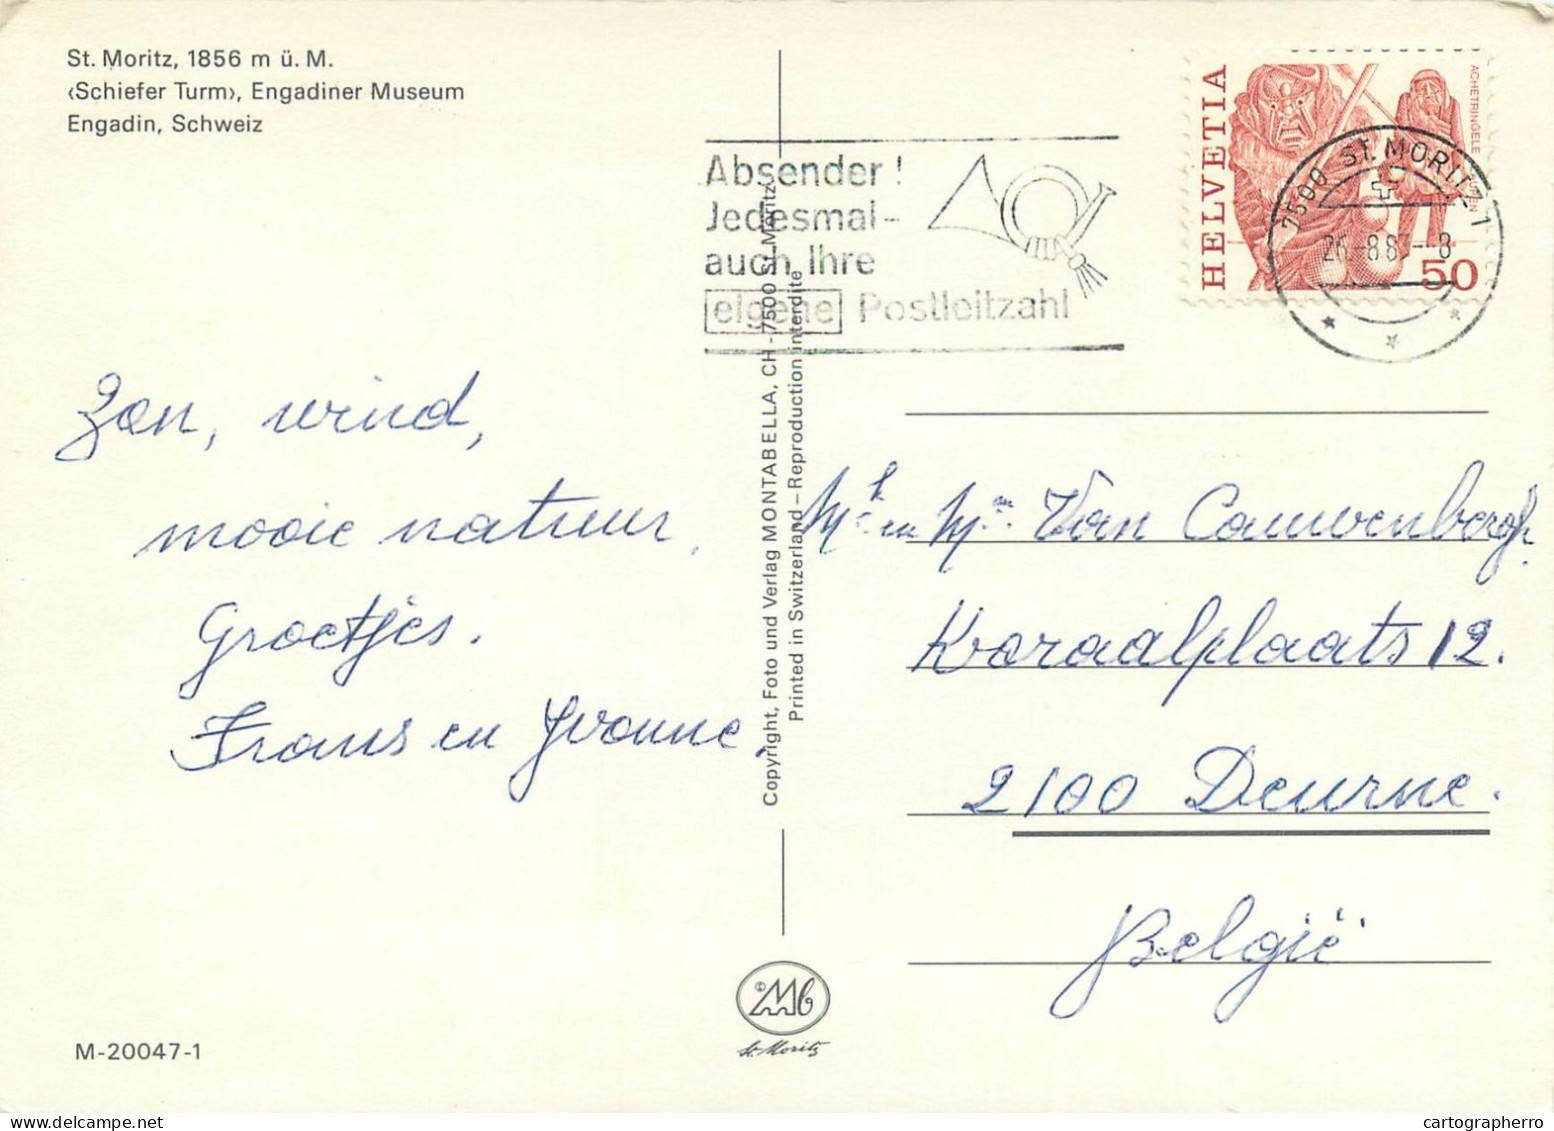 St. Moritz, 1856 m ü. M.
‹Schiefer Turm›, Engadiner Museum
Engadin, Schweiz
HELVETIA
ACHETRINGELE
50
7500 ST. MORITZ 1
26.-8.8
Absender!
Jedesmal-
auch Ihre
eigene Postleitzahl
Zon, wind,
mooie natuur.
Groetjes.
Frans en Yvonne.
Copyright, Foto und Verlag MONTABELLA, CH-7500 St. Moritz
Printed in Switzerland – Reproduction interdite
Mr en Mw Van Cauwenbergh.
Koraalplaats 12.
2100 Deurne.
België
© Mb
St. Moritz
M-20047-1
cartographerro